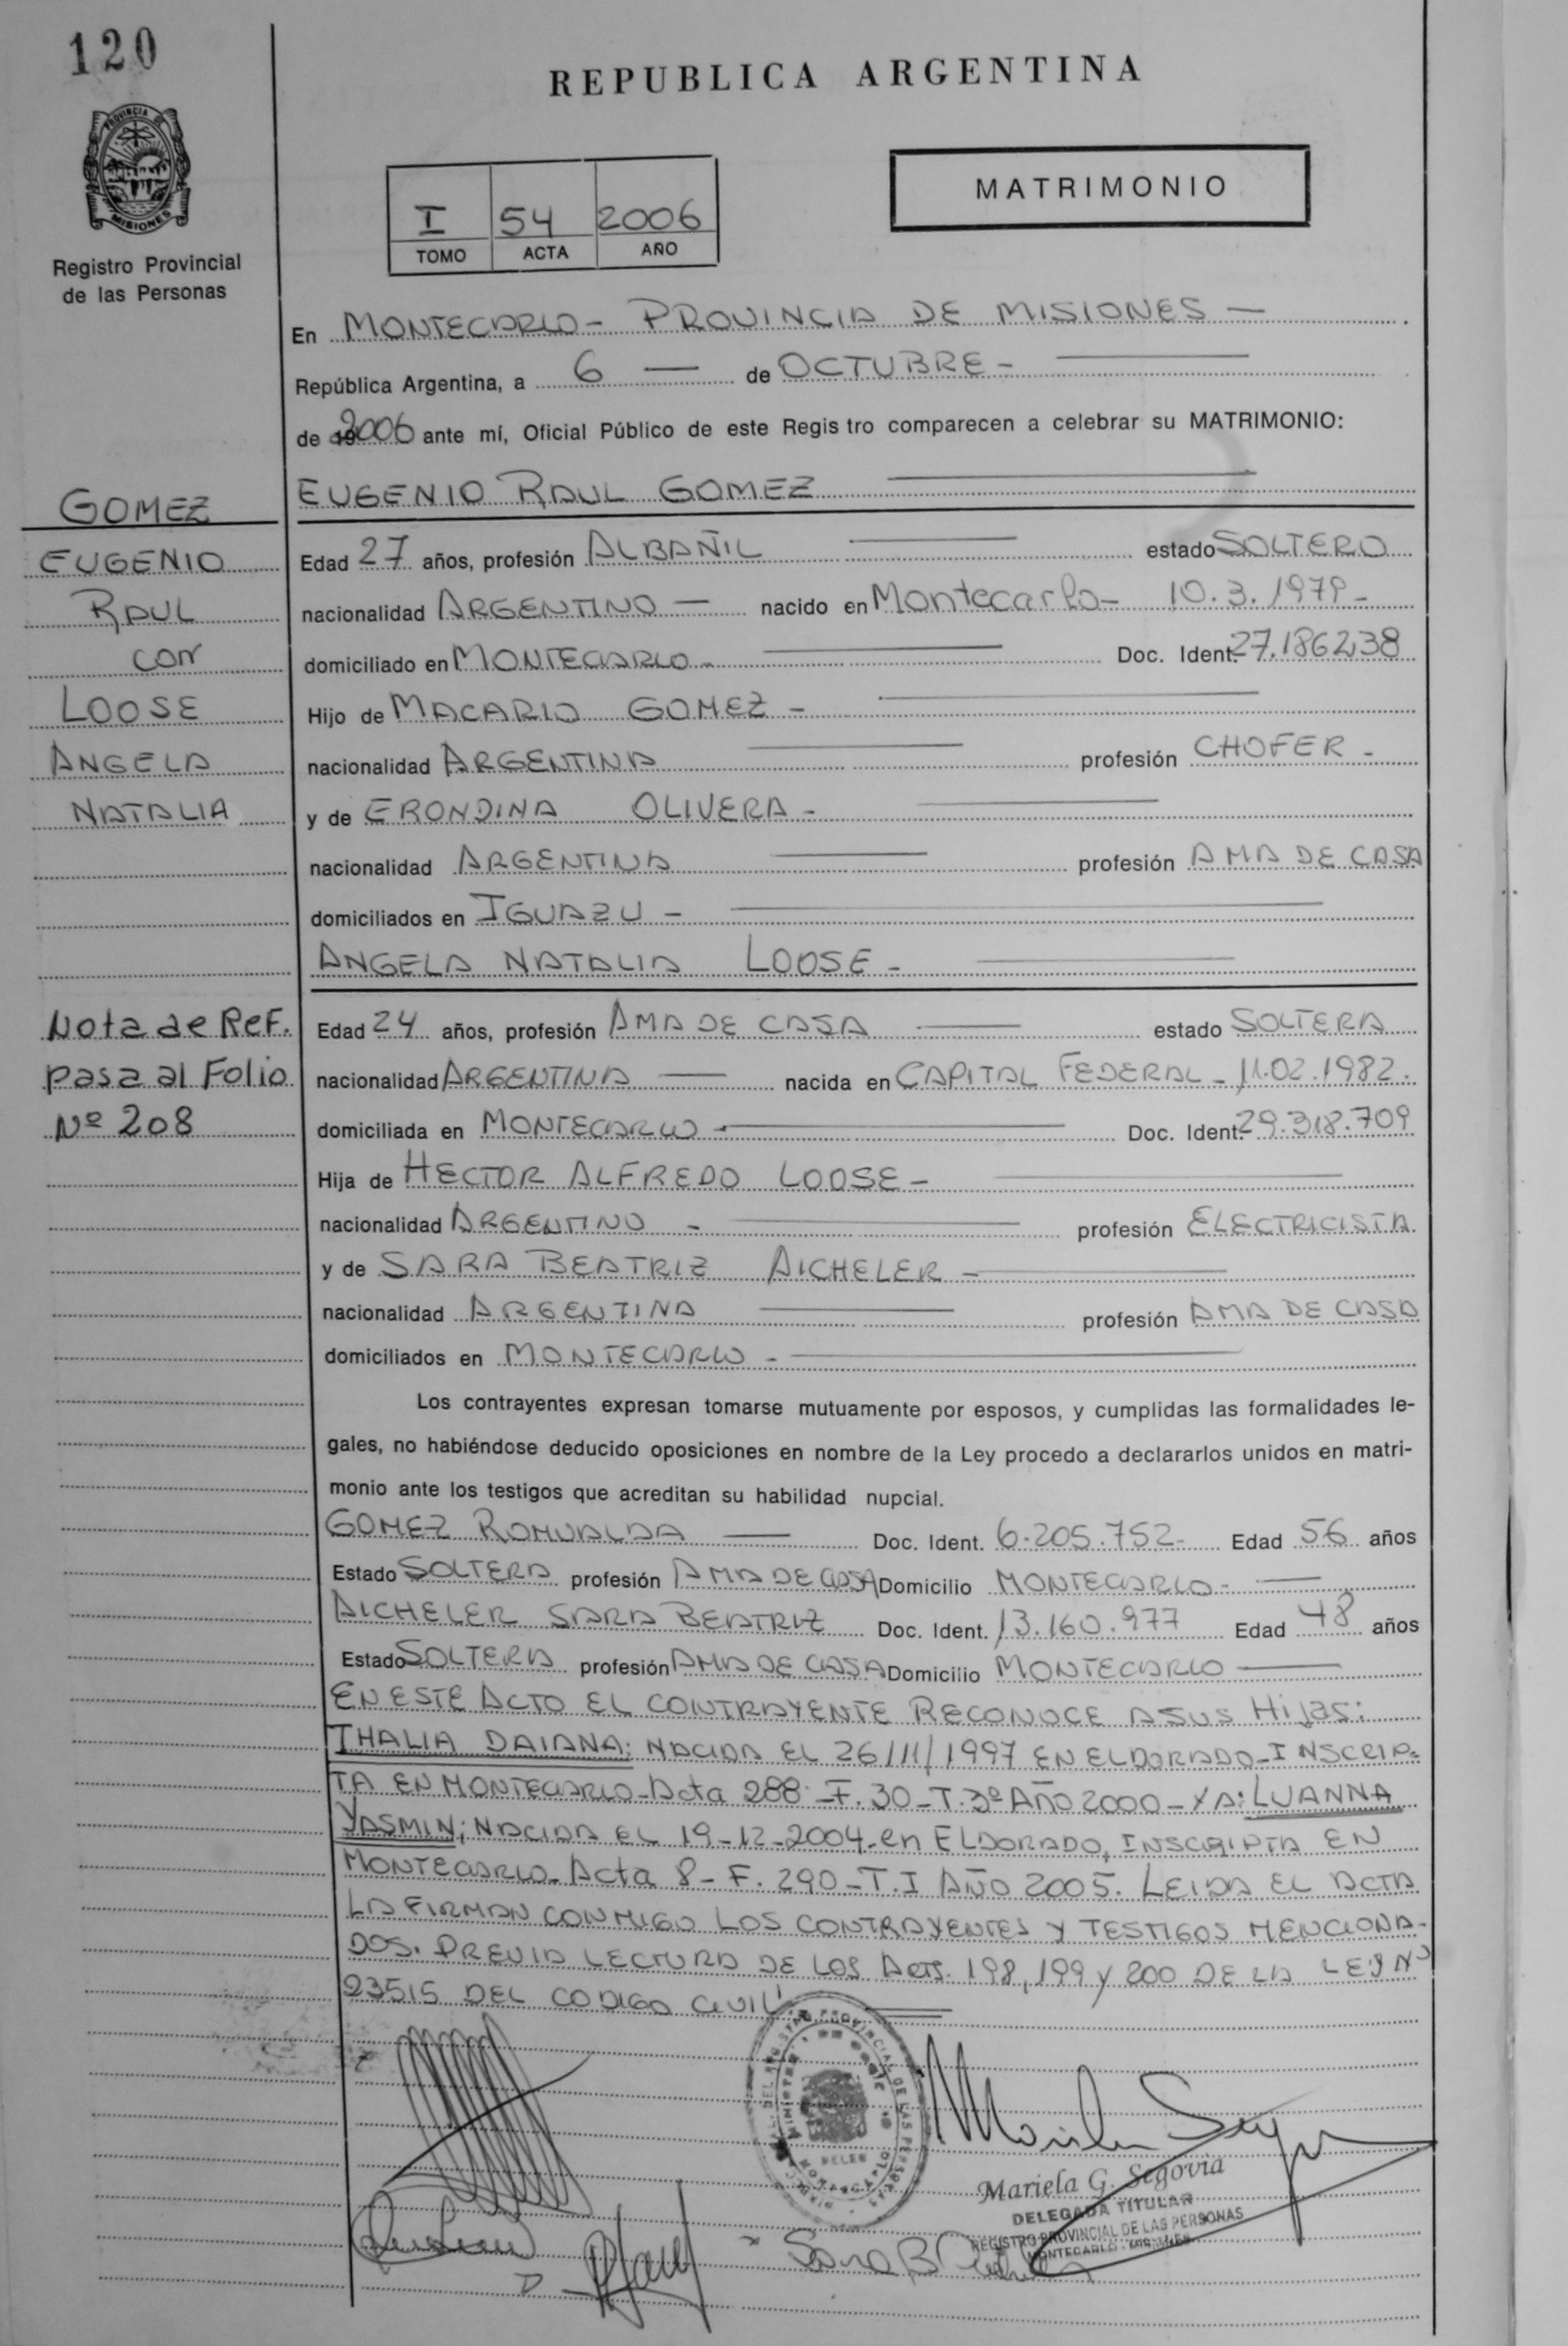 120
REPUBLICA ARGENTINA
PROVINCIA DE MISIONES
Registro Provincial
de las Personas
MATRIMONIO
I 54 2006
TOMO ACTA AÑO
En MONTECARLO - PROVINCIA DE MISIONES —
República Argentina, a 6 — de OCTUBRE -
de 2006 ante mí, Oficial Público de este Regis tro comparecen a celebrar su MATRIMONIO:
EUGENIO RAUL GOMEZ
Edad 27 años, profesión ALBAÑIL estado SOLTERO
nacionalidad ARGENTINO — nacido en Montecarlo - 10.3.1979 -
domiciliado en MONTECARLO - Doc. Ident. 27.186.238
Hijo de MACARIO GOMEZ -
nacionalidad ARGENTINA profesión CHOFER -
y de ERONDINA OLIVERA -
nacionalidad ARGENTINA profesión AMA DE CASA
domiciliados en IGUAZU -
ANGELA NATALIA LOOSE -
Edad 24 años, profesión AMA DE CASA estado SOLTERA
nacionalidad ARGENTINA — nacida en CAPITAL FEDERAL - 11.02.1982.
domiciliada en MONTECARLO - Doc. Ident. 29.318.709
Hija de HECTOR ALFREDO LOOSE -
nacionalidad ARGENTINO - profesión ELECTRICISTA
y de SARA BEATRIZ AICHELER -
nacionalidad ARGENTINA profesión AMA DE CASA
domiciliados en MONTECARLO -
Los contrayentes expresan tomarse mutuamente por esposos, y cumplidas las formalidades le-
gales, no habiéndose deducido oposiciones en nombre de la Ley procedo a declararlos unidos en matri-
monio ante los testigos que acreditan su habilidad nupcial.
GOMEZ ROMUALDA — Doc. Ident. 6.205.752 - Edad 56 años
Estado SOLTERA profesión AMA DE CASA Domicilio MONTECARLO - —
AICHELER SARA BEATRIZ Doc. Ident. 13.160.977 Edad 48 años
Estado SOLTERA profesión AMA DE CASA Domicilio MONTECARLO —
EN ESTE ACTO EL CONTRAYENTE RECONOCE A SUS Hijas:
THALIA DAIANA; NACIDA EL 26/11/1997 EN ELDORADO - INSCRIP-
TA EN MONTECARLO - Acta 288 - F. 30 - T. 3º AÑO 2000 - Y A: LUANNA
YASMIN; NACIDA EL 19-12-2004 - en ELDORADO, INSCRIPTA EN
MONTECARLO - Acta 8 - F. 290 - T. I AÑO 2005. LEIDA EL ACTA
LA FIRMAN CONMIGO LOS CONTRAYENTES Y TESTIGOS MENCIONA-
DOS. PREVIA LECTURA DE LOS Arts. 198, 199 y 200 DE LA LEY Nº
23515 DEL CODIGO CIVIL
GOMEZ
EUGENIO
RAUL
con
LOOSE
ANGELA
NATALIA
Nota de Ref.
pasa al Folio
Nº 208
Mariela G. Segovia
DELEGADA TITULAR
REGISTRO PROVINCIAL DE LAS PERSONAS
MONTECARLO - MISIONES